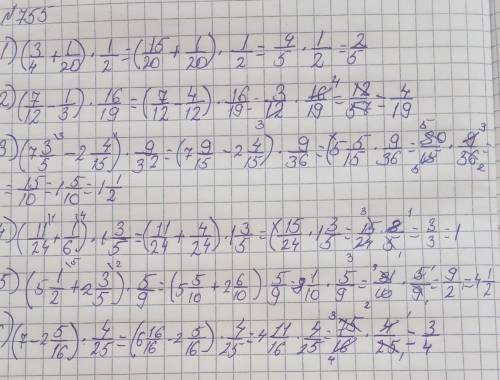 №755
1) (3/4 + 1/20) · 1/2 = (15/20 + 1/20) · 1/2 = 4/5 · 1/2 = 2/5
2) (7/12 - 1/3) · 16/19 = (7/12 - 4/12) · 16/19 = 3/12 · 16/19 = 12/57 = 4/19
3) (7 3/5 - 2 4/15) · 9/32 = (7 9/15 - 2 4/15) · 9/36 = (5 5/15 · 9/36 = 80/15 · 9/36 =
= 15/10 = 1 5/10 = 1 1/2
4) (11/24 + 1/6) · 1 3/5 = (11/24 + 4/24) · 1 3/5 = (15/24 · 1 3/5 = 15/24 · 8/5 = 3/3 = 1
5) (5 1/2 + 2 3/5) · 5/9 = (5 5/10 + 2 6/10) · 5/9 = 8 1/10 · 5/9 = 81/10 · 5/9 = 9/2 = 4 1/2
(7 - 2 5/16) · 4/25 = (6 16/16 - 2 5/16) · 4/25 = 4 11/16 · 4/25 = 75/16 · 4/25 = 3/4